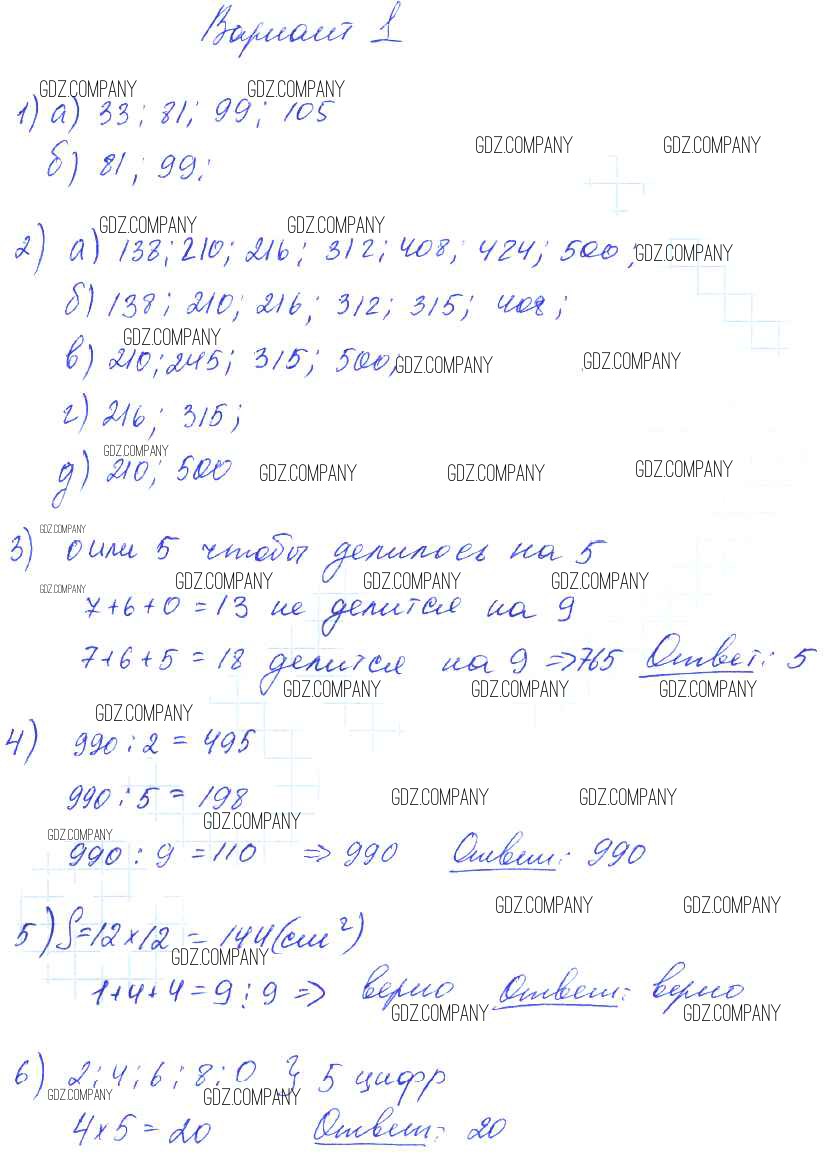 Вариант 1
GDZ.COMPANY GDZ.COMPANY
1) а) 33; 81; 99; 105
GDZ.COMPANY GDZ.COMPANY
б) 81; 99;
GDZ.COMPANY GDZ.COMPANY
2) а) 138; 210; 216; 312; 408; 424; 500; GDZ.COMPANY
б) 138; 210; 216; 312; 315; 408;
GDZ.COMPANY
в) 210; 245; 315; 500, GDZ.COMPANY GDZ.COMPANY
г) 216; 315;
GDZ.COMPANY
д) 210; 500 GDZ.COMPANY GDZ.COMPANY GDZ.COMPANY
GDZ.COMPANY
3) 0 или 5 чтобы делилось на 5
GDZ.COMPANY GDZ.COMPANY GDZ.COMPANY GDZ.COMPANY
7+6+0 = 13 не делится на 9
7+6+5 = 18 делится на 9 => 765 Ответ: 5
GDZ.COMPANY GDZ.COMPANY GDZ.COMPANY
GDZ.COMPANY
4) 990 : 2 = 495
990 : 5 = 198 GDZ.COMPANY GDZ.COMPANY
GDZ.COMPANY GDZ.COMPANY
990 : 9 = 110 => 990 Ответ: 990
GDZ.COMPANY GDZ.COMPANY
5) S=12×12 = 144(см²)
GDZ.COMPANY
1+4+4 = 9 : 9 => верно Ответ: верно
GDZ.COMPANY GDZ.COMPANY
6) 2; 4; 6; 8; 0 } 5 цифр
GDZ.COMPANY GDZ.COMPANY
4×5 = 20 Ответ: 20